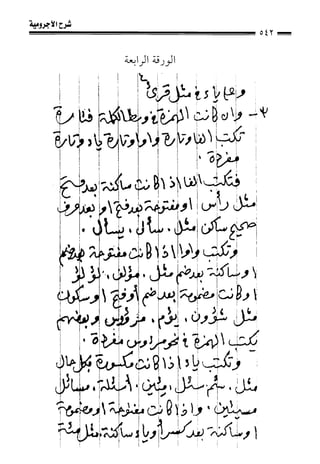 شرح الآجرومية
٥٤٢
الورقة الرابعة
وعلى ياء في مثل قرئ
٣- وإن كانت الهمزة في وسط الكلمة فتارة
تكتب ألفا وتارة واوا وتارة ياء وتارة
مفردة.
فتكتب ألفا إذا كانت ساكنة بعد فتح
مثل رأس أو مفتوحة بعد فتح أو بعد حرف
صحيح ساكن مثل. سأل. يسأل.
وتكتب واوا إذا كانت مفتوحة بعد ضم
أو ساكنة بعد ضم مثل. مؤلف. لؤلؤ
أو كانت مضمومة بعد ضم أو فتح أو سكون
مثل شؤون. يؤم. مرؤوس وبعضهم
يكتب الهمزة في نحو مرءوس مفردة.
وتكتب ياء إذا كانت مكسورة بكل حال
مثل. سئم. سئل. مئين. أسئلة. مسائل
مسيئين. وإذا كانت مفتوحة أو مضمومة
أو ساكنة بعد كسر أو ياء ساكنة. مثل مئة